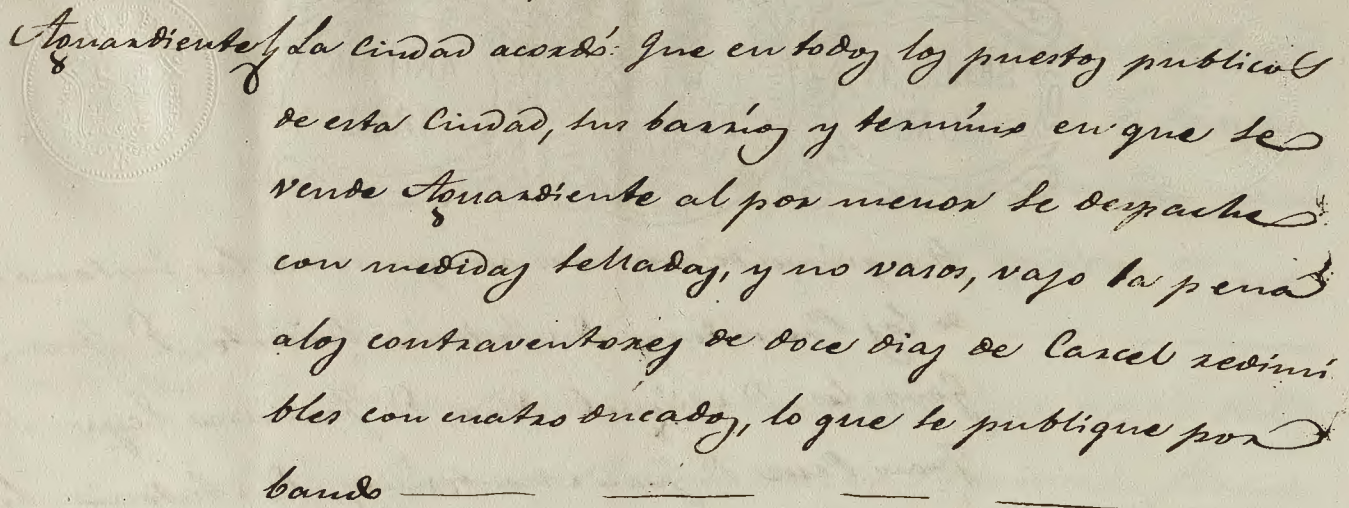 Aguardiente La Ciudad acordó: Que en todos los puestos publicos
de esta Ciudad, sus barrios y termino en que se
vende Aguardiente al por menor se despache
con medidas selladas, y no vasos, vajo la pena
alos contraventores de doce dias de Carcel redimi
bles con cuatro ducados, lo que se publique por
bando